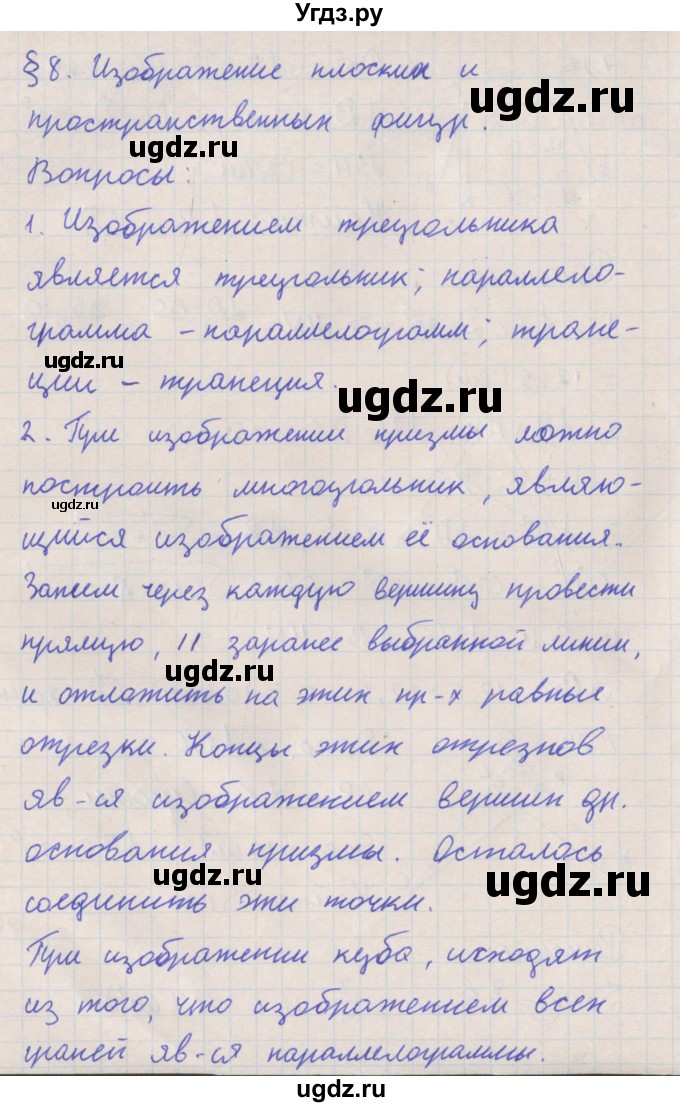 Угдз.ру
§8. Изображение плоских и
ugdz.ru
пространственных фигур.
ugdz.ru
Вопросы:
1. Изображением треугольника
является треугольник; параллело-
грамма – параллелограмм; трапе-
ugdz.ru
ции – трапеция.
ugdz.ru
2. При изображении призмы можно
построить многоугольник, являю-
ugdz.ru
щийся изображением её основания.
Затем через каждую вершину провести
прямую, || заранее выбранной линии,
ugdz.ru
и отложить на этих пр-х равные
отрезки. Концы этих отрезков
яв-ся изображением вершин др.
основания призмы. Осталось
ugdz.ru
ugdz.ru
соединить эти точки.
При изображении куба, исходят
из того, что изображением всех
граней яв-ся параллелограммы.
ugdz.ru